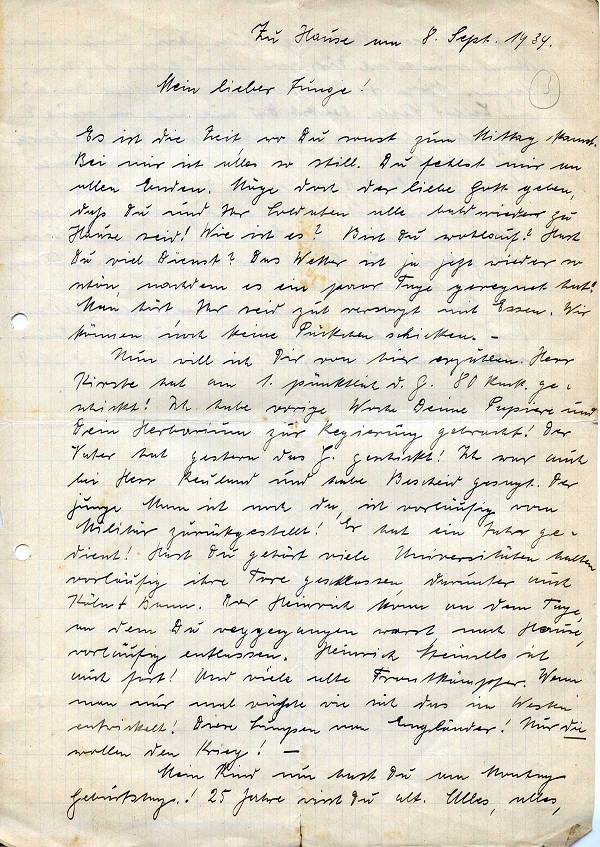 Zu Hause am 8. Sept. 1939.
Mein lieber Junge!
Es ist die Zeit, wo Du sonst zum Mittag kamst.
Bei mir ist alles so still. Du fehlst mir an
allen Enden. Möge doch der liebe Gott geben,
daß Du und Ihr Soldaten alle bald wieder zu
Hause seid! Wie ist es? Bist Du wohlauf? Hast
Du viel Dienst? Das Wetter ist ja jetzt wieder so
schön, nachdem es ein paar Tage geregnet hat!
Man hört, Ihr seid gut versorgt mit Essen. Wir
können noch keine Päckchen schicken. –
Nun will ich Dir von hier erzählen. Herr
hat am 1. pünktlich d. G. 80 ge-
schickt! Ich habe vorige Woche Deine Papiere und
Dein Herbarium zur Regierung gebracht! Der
Vater hat gestern das G. geschickt! Ich war auch
bei Herr und habe Bescheid gesagt. Der
junge Mann ist noch da, ist vorläufig vom
Militär zurückgestellt! Er hat ein Jahr ge-
dient! Hast Du gehört viele Universitäten halten
vorläufig ihre Tore geschlossen, darunter auch
Köln + Bonn. Der Heinrich kam an dem Tage,
an dem Du weggegangen warst nach Hause,
vorläufig entlassen. Heinrich ist
auch fort! Und viele alte Frontkämpfer. Wenn
man nur mal wüßte wie sich das im Westen
entwickelt! Diese Lumpen von Engländer! Nur die
wollen den Krieg! –
Mein Kind nun hast Du am Montag
Geburtstag! 25 Jahre wirst Du alt. Alles, alles,